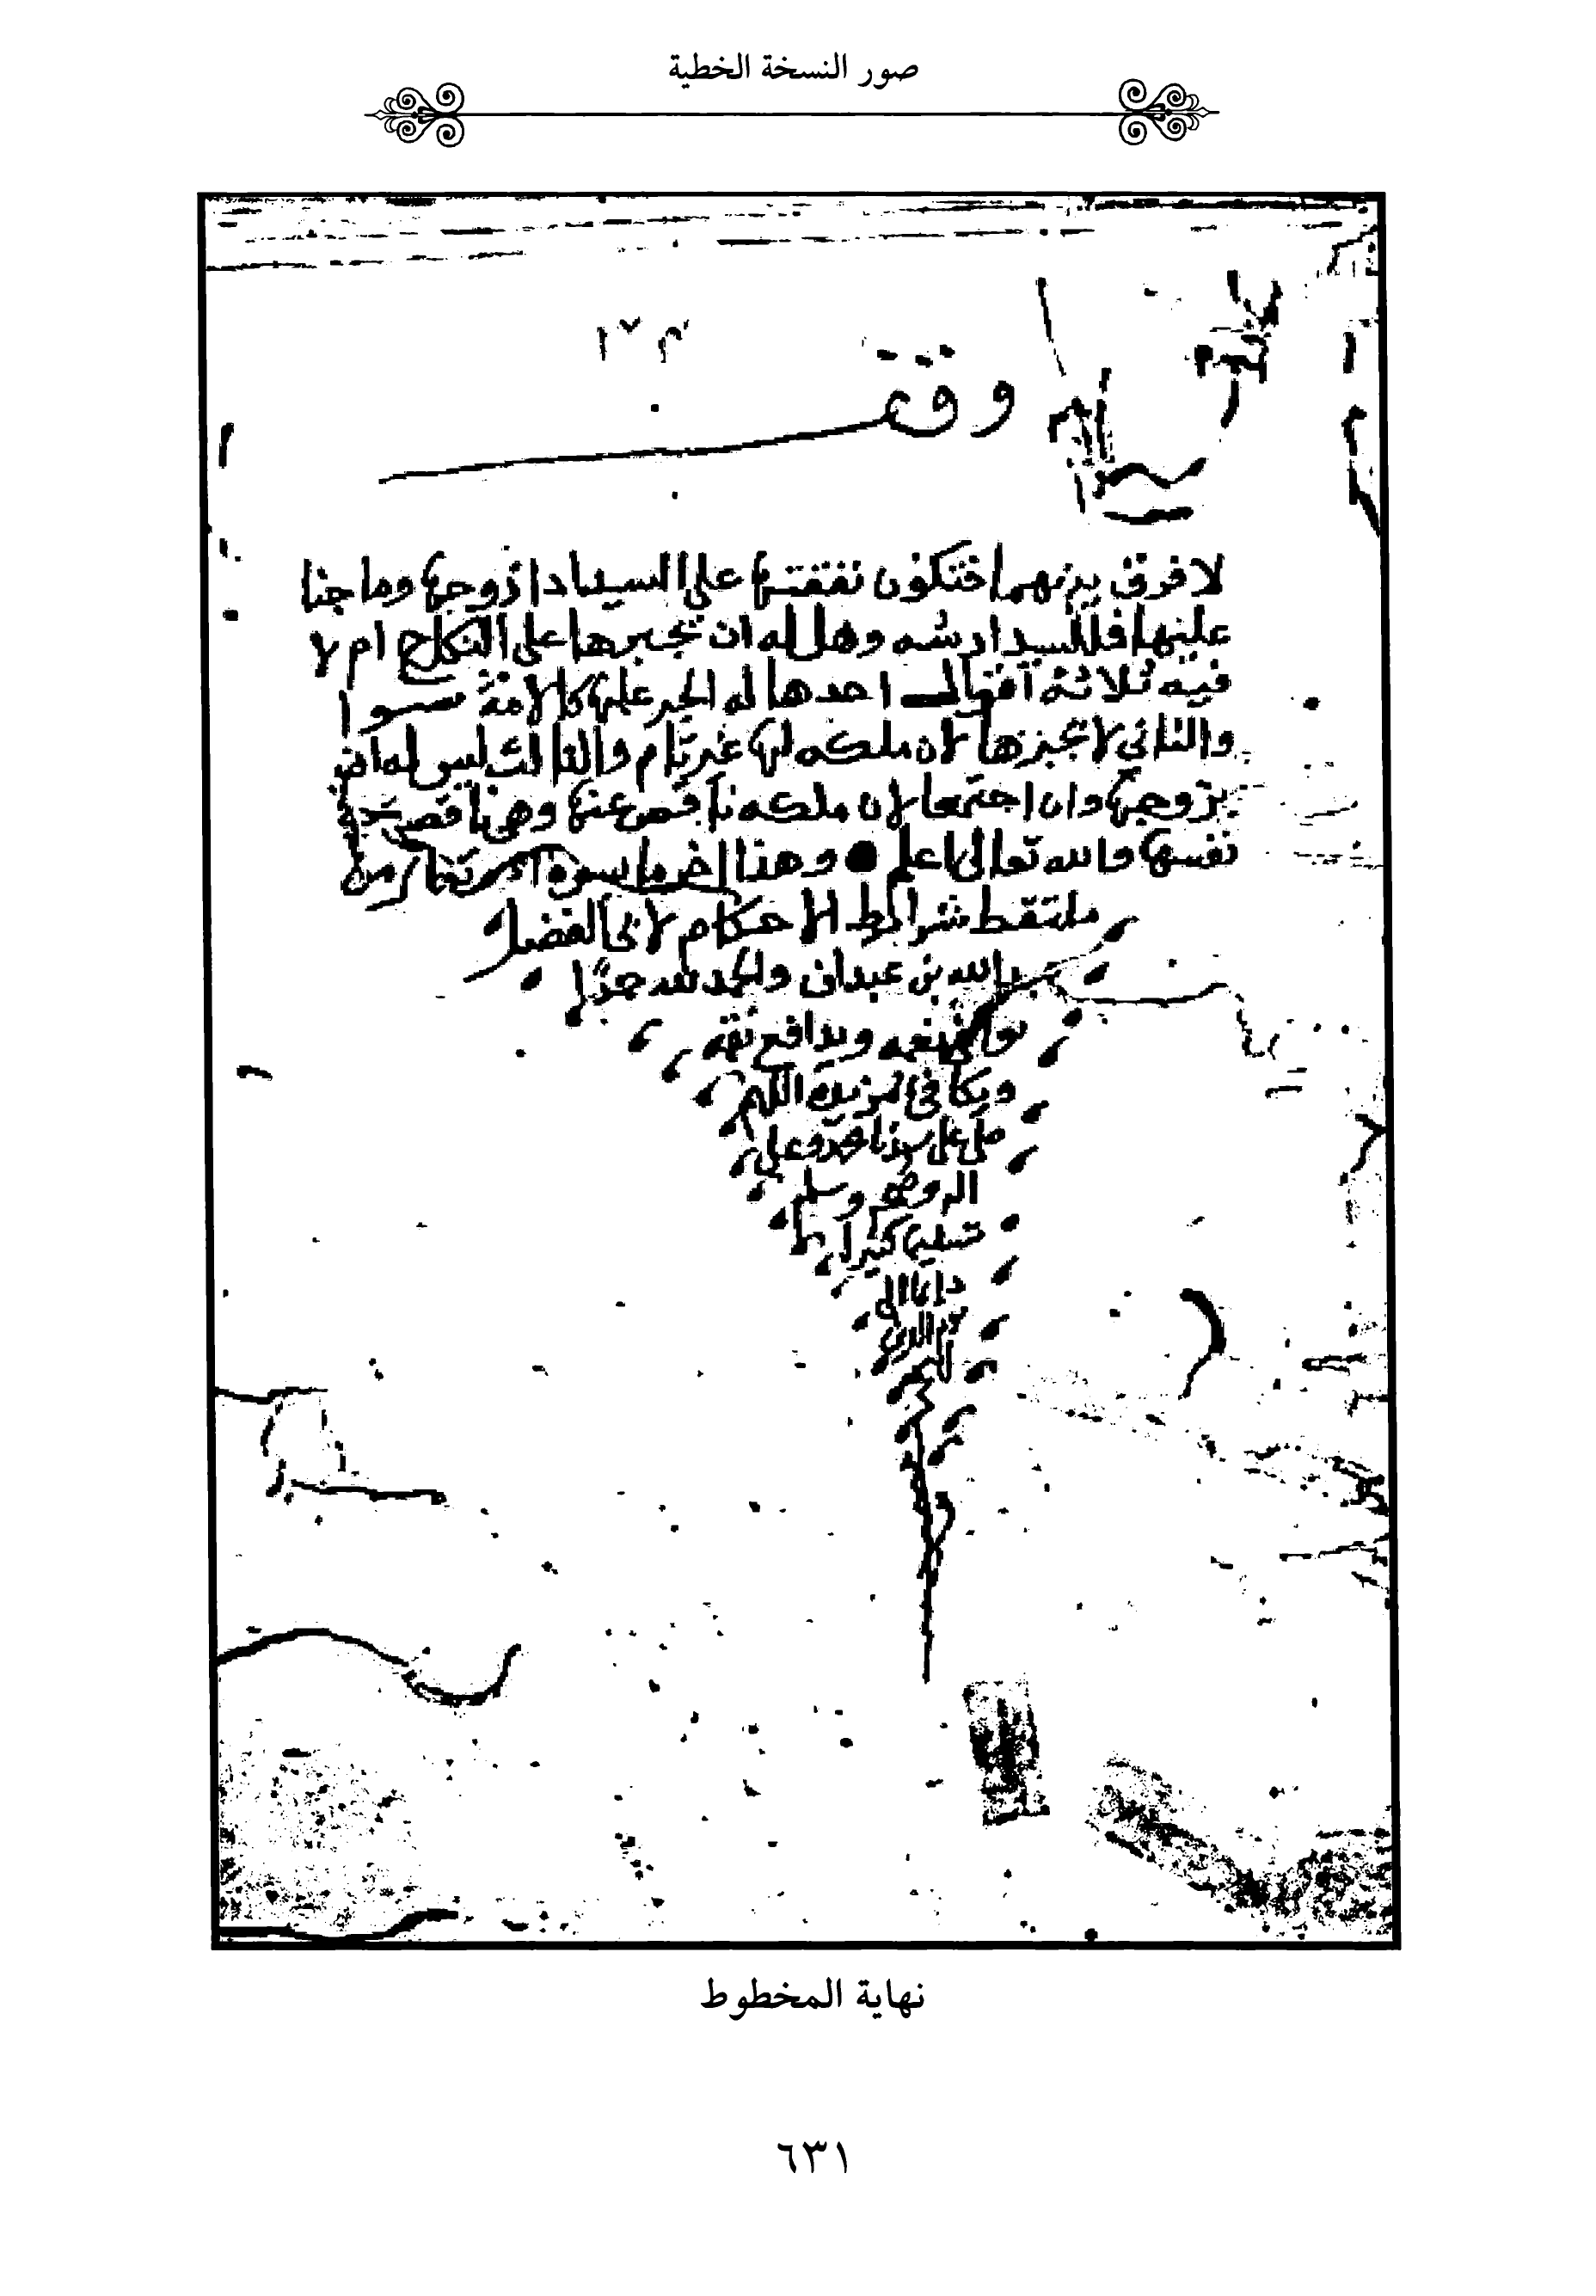 صور النسخة الخطية
وقف
لا فرق بينهما فتكون نفقتها على السيد اذا زوجها وما جنا
عليها فللسيد ارشه وهل له ان يجبرها على النكاح ام لا
فيه ثلاثة اقوال احدها له الجبر عليها كالامة سوا
والثاني لا يجبرها لان ملكه لها غير تام والثالث ليس له ان
يزوجها وان اجتمعا لان ملكه ناقص عنها وهي ناقصة في
نفسها والله تعالى اعلم وهذا اخر ما يسره الله تعالى من
ملتقط شرائط الاحكام لابي الفضل
عبدالله بن عبدان والحمد لله حمدًا
يوافي نعمه ويدافع نقمه
ويكافي مزيده اللهم
صل على سيدنا محمد وعلى
اله وصحبه وسلم
تسليما كثيرا
دائما الى
يوم الدين
نهاية المخطوط
٦٣١